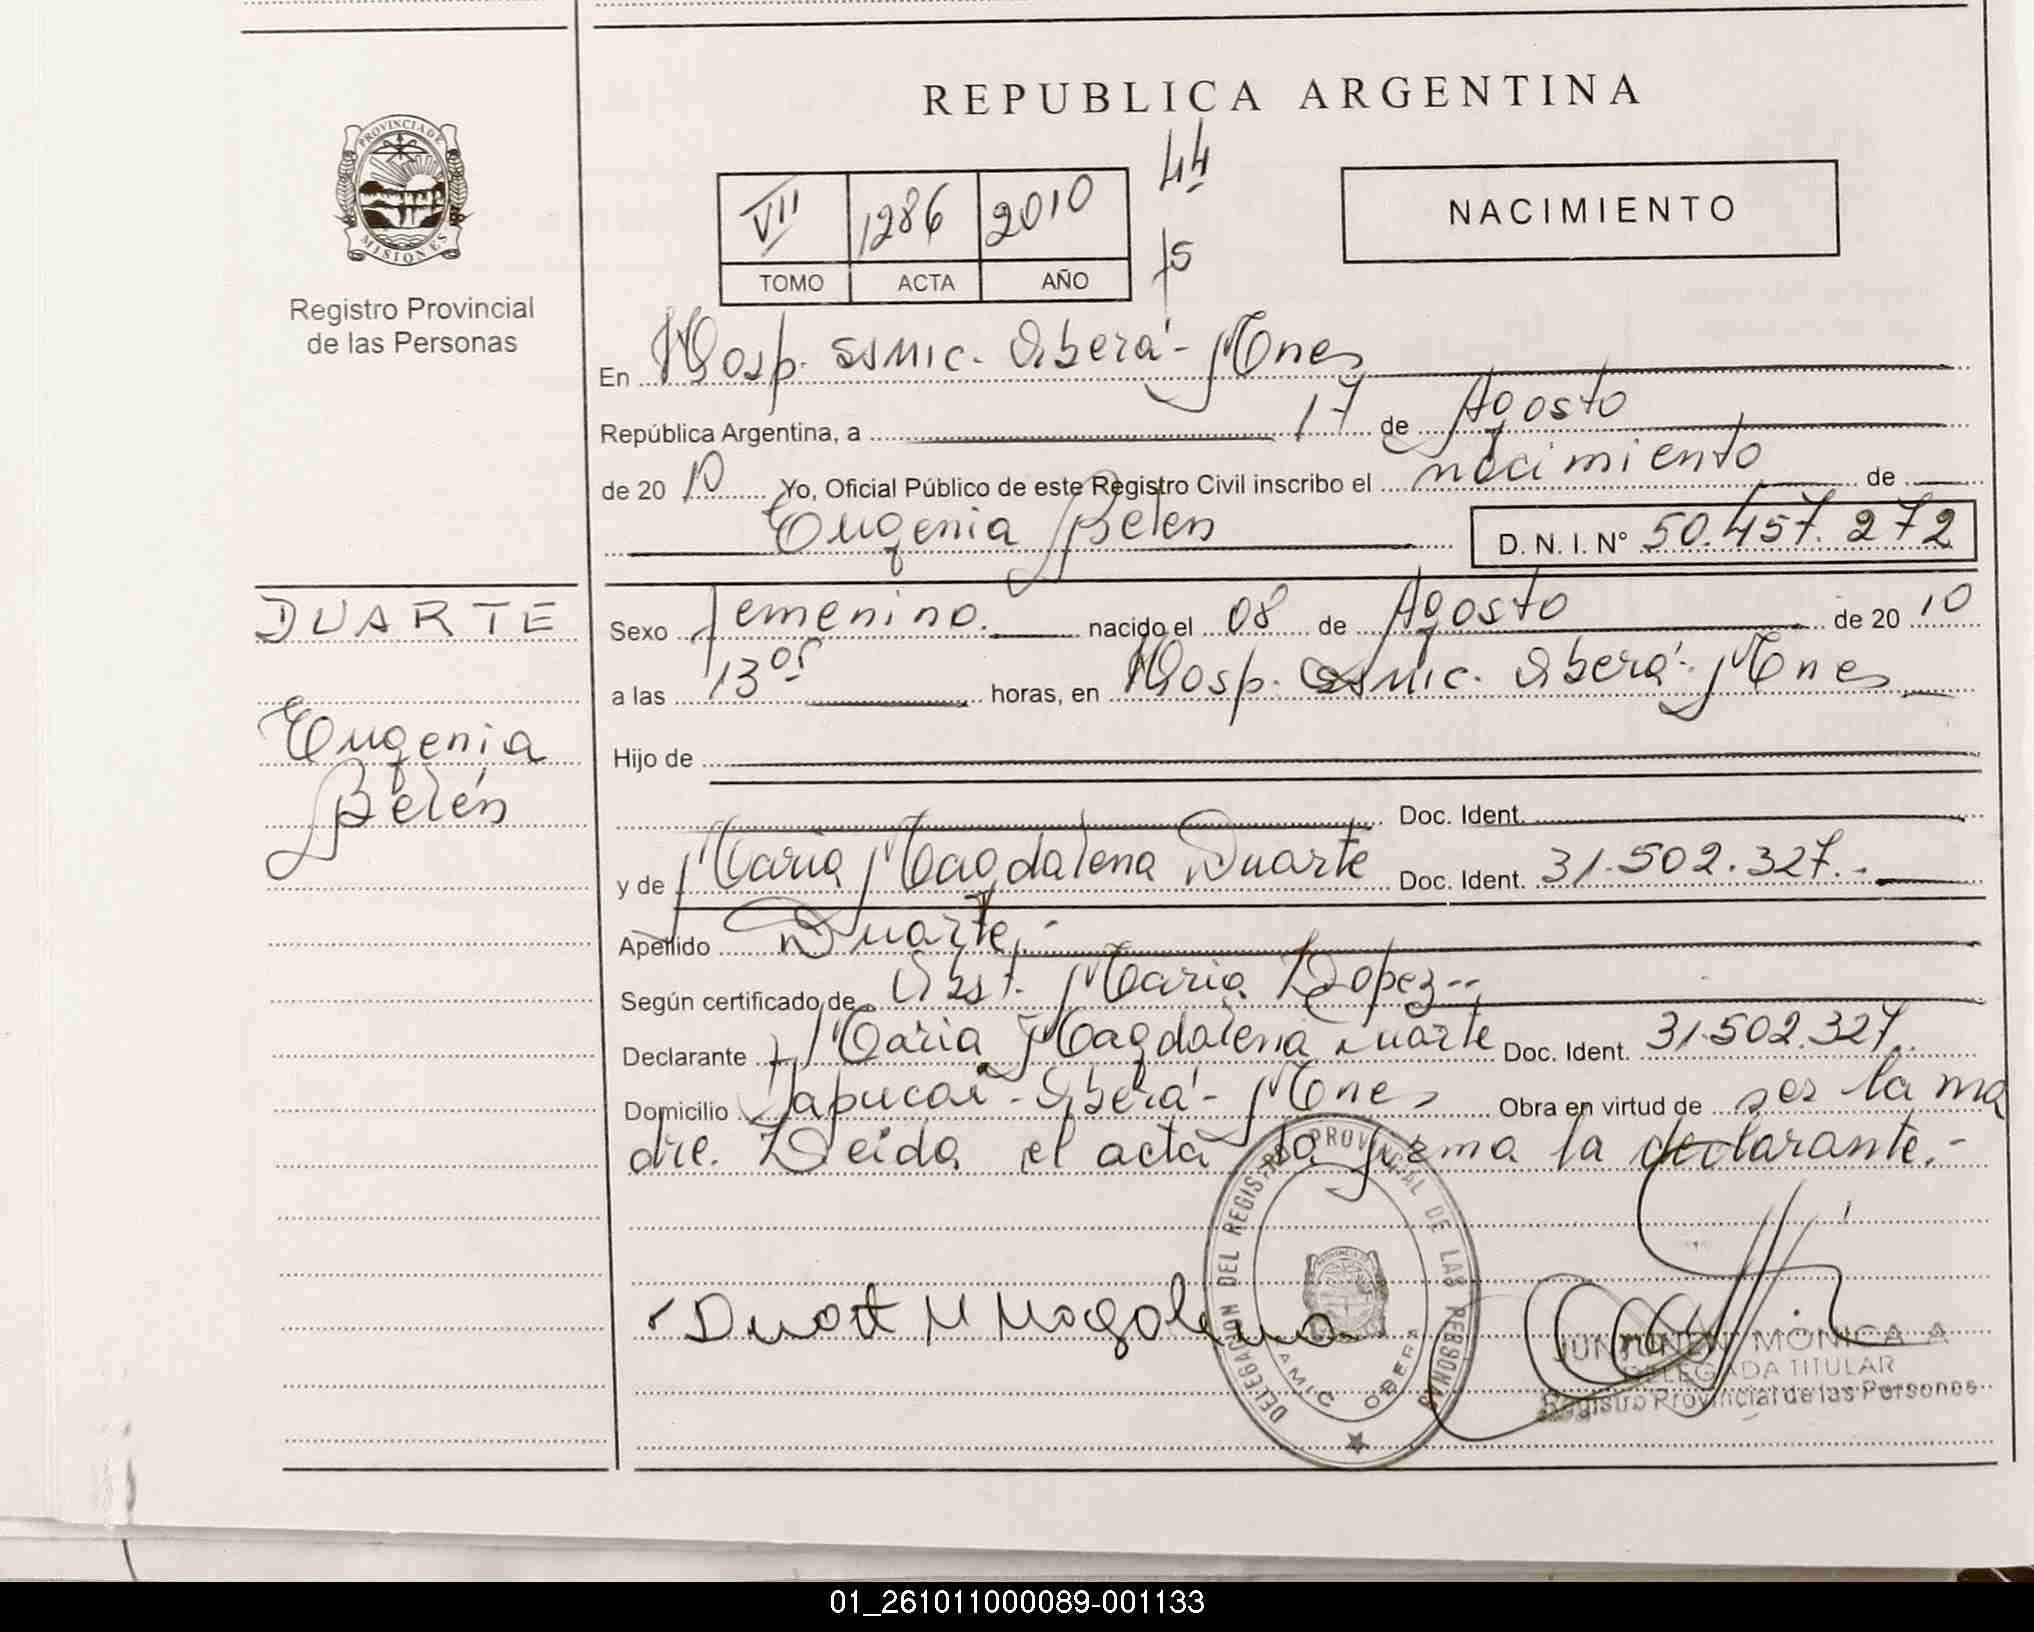 REPUBLICA ARGENTINA
PROVINCIA DE
MISIONES
Registro Provincial
de las Personas
VII 1286 2010
TOMO ACTA AÑO
44
75
NACIMIENTO
En Hosp. SSMIC. Oberá - Mnes
República Argentina, a 17 de Agosto
de 20 10 Yo, Oficial Público de este Registro Civil inscribo el nacimiento de
Eugenia Belén D. N. I. N° 50.457.272
DUARTE
Eugenia
Belén
Sexo femenino. nacido el 08 de Agosto de 20 10
a las 13 05 horas, en Hosp. SSMIC. Oberá - Mnes
Hijo de
Doc. Ident.
y de Maria Magdalena Duarte Doc. Ident. 31.502.327.-
Apellido Duarte.-
Según certificado de Obst. Maria Lopez.-
Declarante Maria Magdalena Duarte Doc. Ident. 31.502.327.
Domicilio Yapucai - Oberá - Mnes Obra en virtud de ser la ma
dre. Leida el acta la firma la declarante.-
Duart M Magdalena
DELEGACION DEL REGISTRO PROVINCIAL DE LAS PERSONAS
SAMIC OBERA
JUNJUNEN MONICA A
DELEGADA TITULAR
Registro Provincial de las Personas
01_261011000089-001133